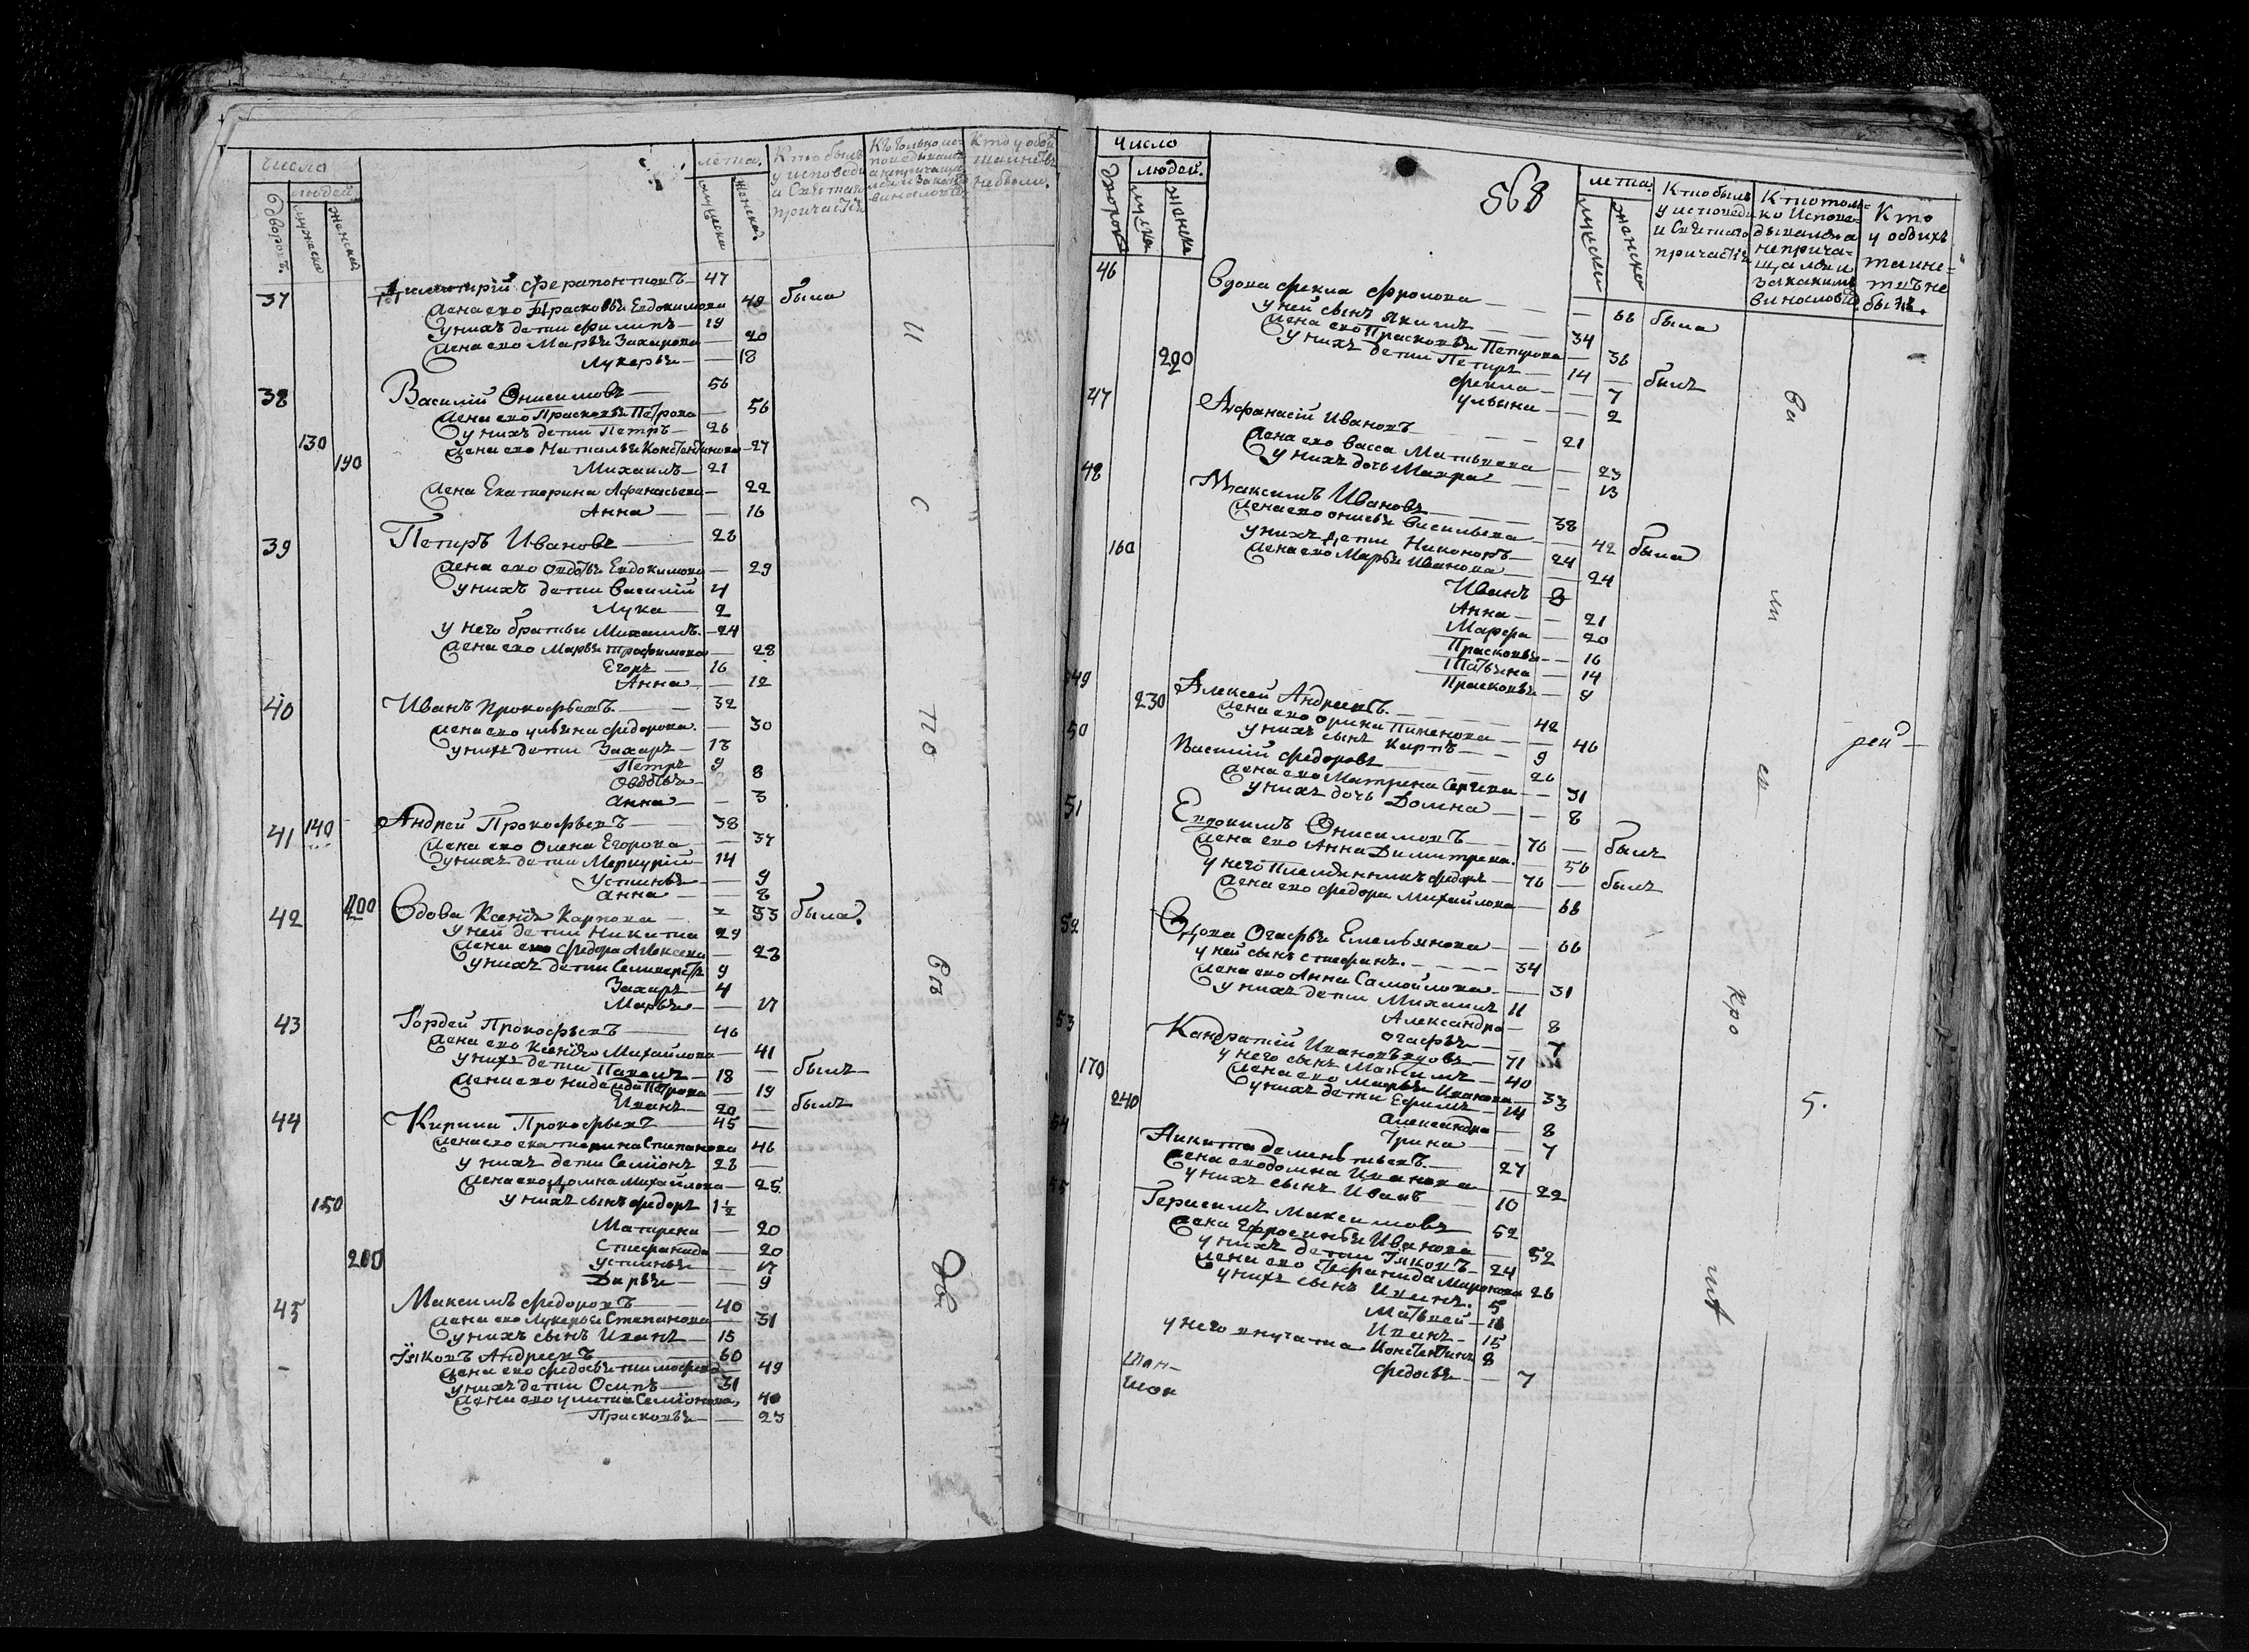 число
людей
дворовъ.
мужеска
женской
лета.
мужеска
женской
Кто былъ
у исповеди
и Святаго
причастія
Кто у обои
таинствъ
небыли.
37 Димитрій Ферапонтовъ 47
жена его Прасковья Евдокимова 49 была
у нихъ дети Филипъ 19
жена его Марья Захарова 20
Лукерья 18
38 Василий Онисимовъ 56
жена его Прасковья Петрова 56
у нихъ дети Петръ 26
130 жена его Наталья Констентинова 27
190 Михаилъ 21
жена Екатерина Афанасьева 22
Анна 16
39 Петръ Ивановъ 28
жена его Овдотья Евдокимова 29
у нихъ дети Василий 4
Лука 2
у него братьи Михаилъ 24
жена его Марья Трофимова 28
Егоръ 16
Анна 12
40 Иванъ Прокофьевъ 32
жена его Ульяна Федорова 30
у нихъ дети Захаръ 13
Петръ 9
Овдотья 8
Анна 3
41 140 Андрей Прокофьевъ 38
жена его Олена Егорова 37
у нихъ дети Меркурій 14
Устинья 9
Анна 8
42 200 Вдова Ксенія Карпова 53 была.
у ней дети Никита 29
жена его Федора Алексеева 23
у нихъ дети Селиверстъ 9
Захаръ 4
Марья 17
43 Гордей Прокофьевъ 46
жена его Ксенія Михайлова 41
у нихъ дети Павелъ 18 былъ
жена его Надежда Петрова 19
Иванъ 20 былъ
44 Кирила Прокофьевъ 45
жена его Екатерина Степанова 46
у нихъ дети Семіонъ 28
жена его Домна Михайлова 25
150 у нихъ сынъ Федоръ 1½
Матрена 20
Стефанида 20
210 Устинья 17
Дарья 9
45 Максимъ Федоровъ 40
жена его Лукерья Степанова 31
у нихъ сынъ Иванъ 15
Іяковъ Андреевъ 60
жена его Федосья Тимофеева 49
у нихъ дети Осипъ 31
жена его Улита Семіонова 40
Прасковья 23
И
С
по
въ
568
число
людей.
дворов
мужеска
женска
лета.
мужска
женска
Кто былъ
у исповеди
и Святаго
причастія
Кто толь-
ко Испове-
дывался а
неприча-
щался и
за какимъ
винословіемъ
Кто
у обоихъ
таинс-
твъ не
былъ.
46 Вдова Фекла Фролова 66 была
у ней сынъ Якимъ 34
жена его Прасковья Петрова 36
220 у нихъ дети Петръ 14 былъ
Фекла 7
Ульяна 2
47 Афанасій Ивановъ 21
жена его Васса Матвеева 23
у нихъ дочь Мавра 13
48 Максимъ Ивановъ 38
жена его Онисья Васильева 42 была
160 у нихъ дети Никоноръ 24
жена его Марья Иванова 24
Иванъ 8
Анна 21
Марфа 20
Прасковья 16
Татьяна 14
Прасковья 9
49 Алексей Андреевъ 42
230 жена его Орина Пименова 46
у нихъ сынъ Карпъ 9
50 Василий Федоровъ 26
жена его Матрена Сергеева 31
у нихъ дочь Домна 8
51 Евдокимъ Онисимовъ 76 былъ
жена его Анна Димитрева. 56
у него племянникъ Федоръ 76 былъ
жена его Федора Михайлова 66
52 Вдова Огафья Емельянова 66
у ней сынъ Стефанъ. 34
жена его Анна Самойлова 31
у нихъ дети Михаилъ 11
Александра 8
Огафья 7
53 Кандратій 71
у него сынъ 40
170 жена его Марья Иванова 33
240 у нихъ дети Ефимъ 14
Александра 8
Ірина 7
54 Никита Деменьтьевъ 27
жена его Домна Иванова 22
у нихъ сынъ Иванъ 10
55 Герасимъ Максимовъ 52
жена Ефросинья Иванова 52
у нихъ дети Іяковъ 24
жена его Стефанида Миронова 26
у нихъ сынъ Иванъ. 5
Матвей 18
Иванъ 15
у него внучата Констентинъ 8
Федосья 7
рей
5.